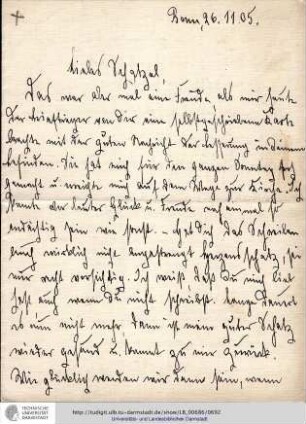 Bonn, 26.11.05.
Liebes Schatzel,
Das war aber mal eine Freude, als mir heute
der Briefträger von dir eine selbstgeschriebene Karte
brachte mit der guten Nachricht der Besserung in deinem
Befinden. Sie hat mich für den ganzen Sonntag
gemacht u. mich auf dem Wege zur Kirche. Ich
konnte vor lauter Glück u. Freude noch einmal so
andächtig sein wie sonst. – Hat dich das Schreiben
auch wirklich nicht angestrengt Herzensschatz, sei
nur recht vorsichtig. Ich weiß daß du mich lieb
hast auch wenn du nicht schreibst. Lange dauert
es nun nicht mehr dann ist mein guter Schatz
wieder gesund u. kommt zu mir zurück.
Wie glücklich werden wir dann sein, wenn
TECHNISCHE
UNIVERSITÄT
DARMSTADT
http://tudigit.ulb.tu-darmstadt.de/show/LB_00686/0692
Universitäts- und Landesbibliothek Darmstadt